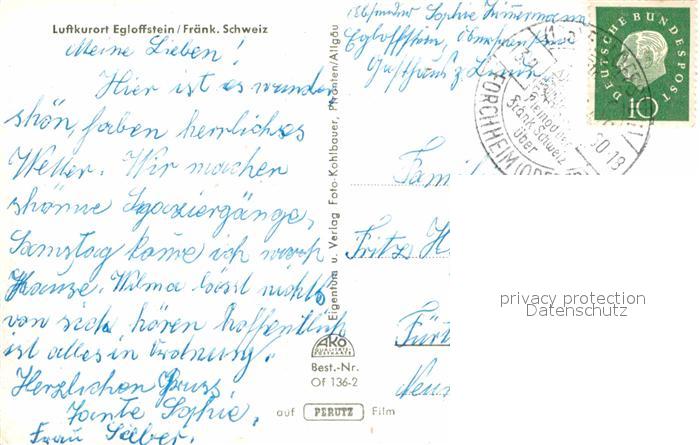 Luftkurort Egloffstein / Fränk. Schweiz
Meine Lieben!
Hier ist es wunder
schön, haben herrliches
Wetter. Wir machen
schöne Spaziergänge,
Samstag komme ich nach
Hause. Wilma lässt nichts
von sich hören hoffentlich
ist alles in Ordnung.
Herzlichen Gruss
Tante Sophie,
Frau
Eigentum u. Verlag Foto-Kohlbauer, Pfronten/Allgäu
AKO
Best.-Nr.
Of 136-2
auf PERUTZ Film
Absender Sophie Zimmermann
Egloffstein,
Gasthaus z. Linde
DEUTSCHE BUNDESPOST
10
FORCHHEIM (OBERFR
Kleinod der
Fränk. Schweiz
über
-18
Fam
Fritz H
Fürt
Neu
privacy protection
Datenschutz